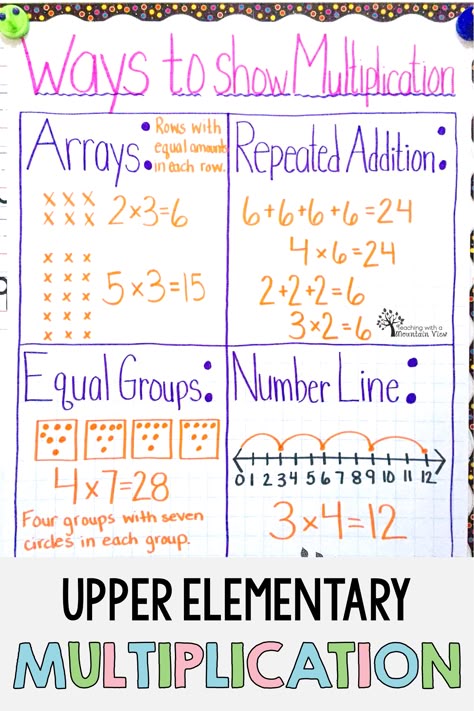 Ways to show Multiplication
Arrays:
Rows with
equal amounts
in each row.
x x x
x x x
2×3=6
x x x
x x x
x x x
x x x
x x x
5×3=15
Repeated Addition:
6+6+6+6=24
4×6=24
2+2+2=6
3×2=6
Teaching with a
Mountain View
Equal Groups:
4×7=28
Four groups with seven
circles in each group.
Number Line:
0 1 2 3 4 5 6 7 8 9 10 11 12
3×4=12
UPPER ELEMENTARY
MULTIPLICATION